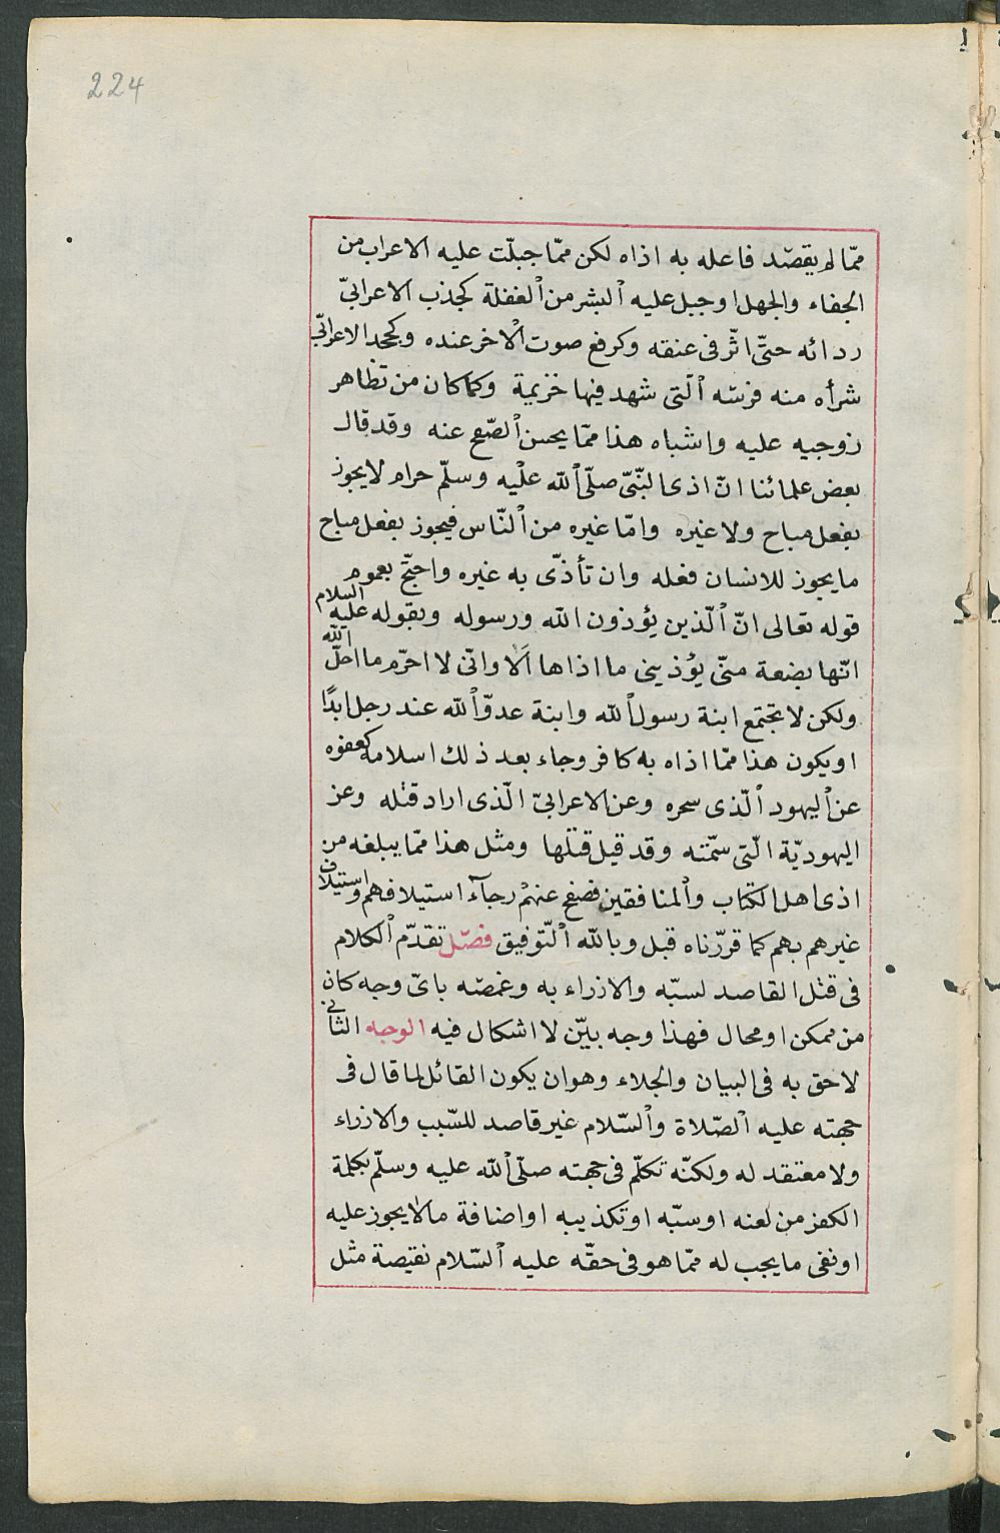 224
ممّا لم يقصّد فاعله به اذاه لكن ممّا جبلّت عليه الاعراب من
الجفاء والجهل او جبل عليه ٱلبشر من ٱلغفلة كجذب الاعرابىّ
ردائه حتّى اثّر فى عنقه وكرفع صوت ٱلاخر عنده وكجحد الاعرابىّ
شرأه منه فرسّه ٱلّتى شهد فيها خزيمة وكما كان من تظاهر
زوجيه عليه واشباه هذا ممّا يحسن ٱلصّفح عنه وقد قال
بعض علمائنا انّ اذى النّبىّ صلّى ٱلله عليْه وسلّم حرام لا يجوز
بفعل مباح ولا غيره وامّا غيره من ٱلنّاس فيجوز بفعل مباح
ما يجوز للانسان فعله وان تأذّى به غيره واحتجّ بعموم
قوله تعالى انّ ٱلّذين يؤذون الله ورسوله وبقوله عليه السلام
انّها بضعة منّى يؤذينى ما اذاها ألا وانّى لا احرّم ما احلّ الله
ولكن لا تجتمع ابنة رسول ٱلله وابنة عدوّ ٱلله عند رجل ابدًا
او يكون هذا ممّا اذاه به كافر وجاء بعد ذلك اسلامه كعفوه
عن ٱليهود ٱلّذى سحره وعن الاعرابىّ الّذى اراد قتله وعن
اليهوديّة الّتى سمّته وقد قيل قتلها ومثل هذا ممّا يبلغه من
اذى اهل الكتاب وٱلمنافقين فصفح عنهمْ رجآء استيلافهم واستيلاف
غيرهم بهم كما قررّناه قبل وبالله ٱلتّوفيق فصّل تقدّم ٱلكلام
فى قتل القاصد لسبّه والازراء به وغمصّه باىّ وجه كان
من ممكن او محال فهذا وجه بيّن لا اشكال فيه الوجه الثانى
لاحق به فى البيان والجلاء وهو ان يكون القائل لما قال فى
جهته عليه ٱلصّلاة وٱلسّلام غير قاصد للسّبب والازراء
ولا معتقد له ولكنّه تكلّم فى جهته صلّى ٱلله عليه وسلّم بكلمة
الكفر من لعنه او سبّه او تكذيبه او اضافة ما لا يجوز عليه
او نفى ما يجب له ممّا هو فى حقّه عليه ٱلسّلام نقيصة مثل